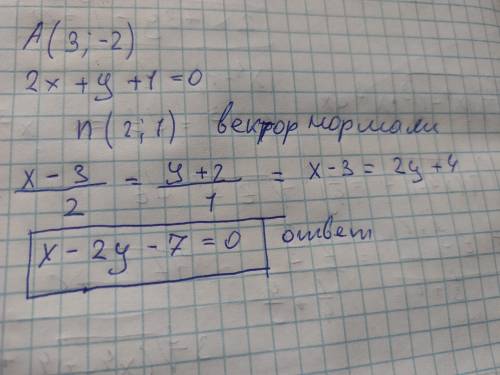 A(3;-2)
2x + y + 1 = 0
n(2;1) вектор нормали
x - 3 / 2 = y + 2 / 1 = x - 3 = 2y + 4
x - 2y - 7 = 0 ответ